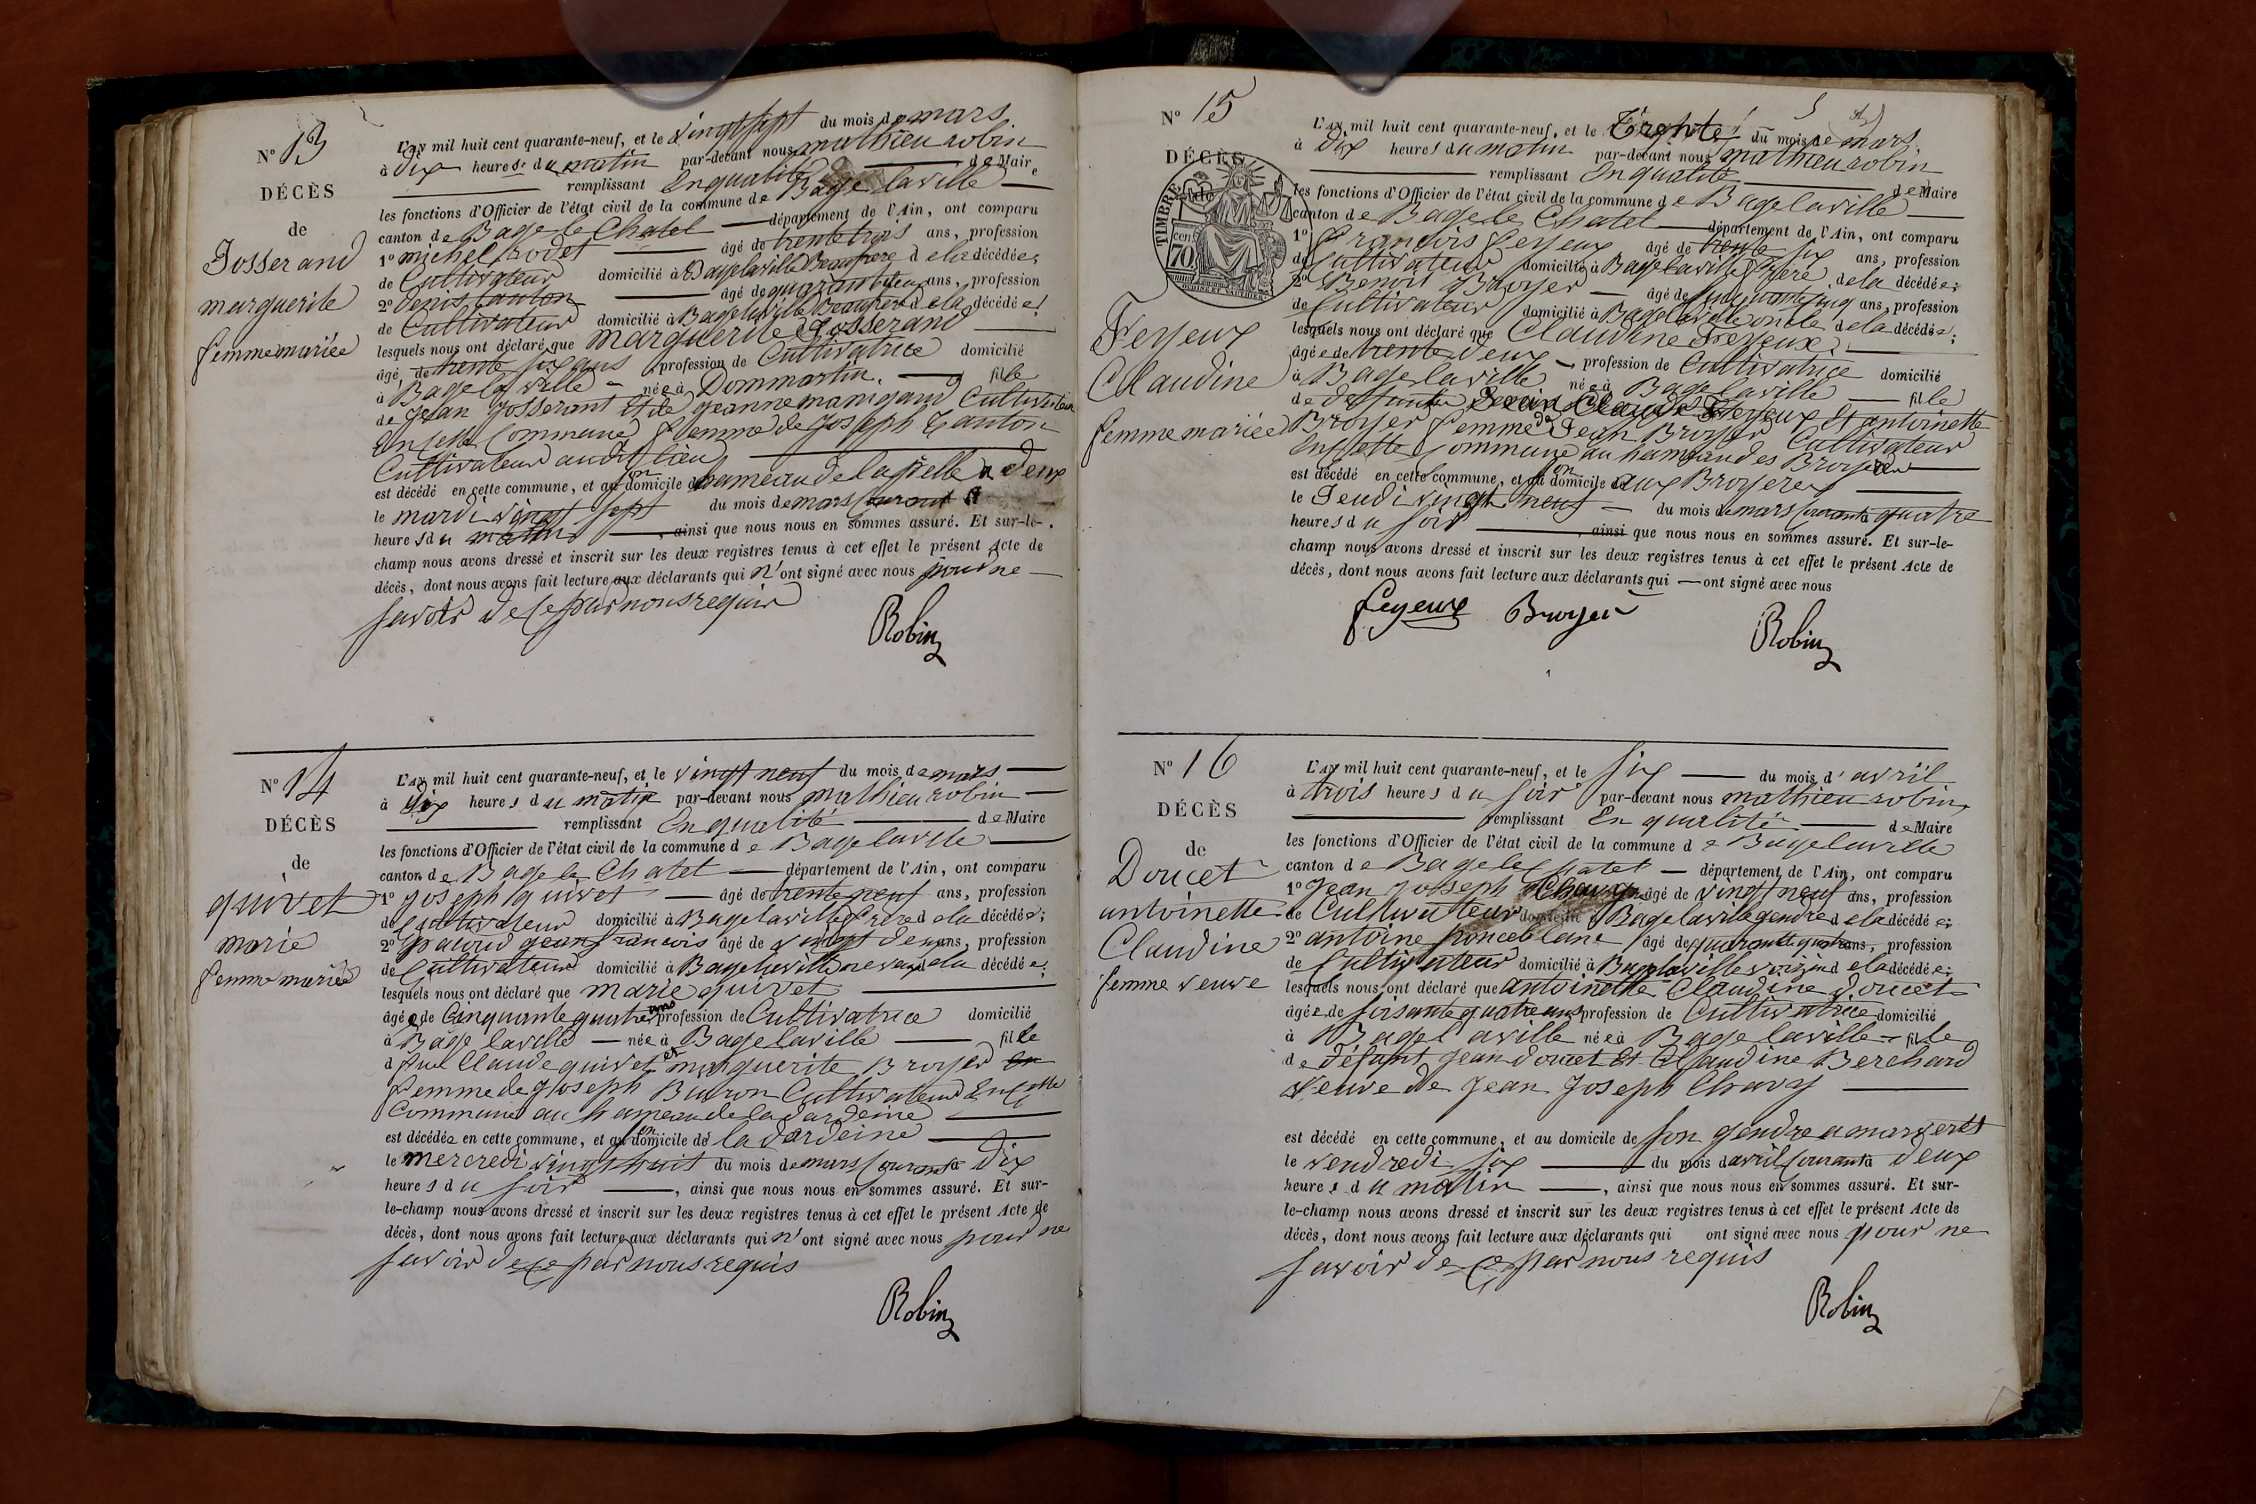 N° 13
DÉCÈS
de
Josserand
marguerite
femme mariée
L'AN mil huit cent quarante-neuf, et le vingt sept du mois de mars
à dix heures du matin par-devant nous mathieu robin
remplissant En qualité de Maire
les fonctions d'Officier de l'état civil de la commune de Bage laville
canton de Bage le Chatel département de l'Ain, ont comparu
1° michel Bodet âgé de trente trois ans, profession
de Cultivateur domicilié à Bagelaville Beaufrere de la décédée;
2° denis tanton âgé de quarante ans, profession
de Cultivateur domicilié à Bagelaville Beaufrere de la décédée;
lesquels nous ont déclaré que marguerite Josserand
âgé, de trente six ans profession de Cultivatrice domicilié
à Bage la ville née à Dommartin. fille
de Jean Josserant Et de jeanne manigand Cultivateur
En Cette Commune femme de Joseph Tanton
Cultivateur audit lieu
est décédé en cette commune, et au son domicile du hameau de la a deux
le mardi vingt sept du mois de mars Courant
heures du matin, ainsi que nous nous en sommes assuré. Et sur-le-
champ nous avons dressé et inscrit sur les deux registres tenus à cet effet le présent Acte de
décès, dont nous avons fait lecture aux déclarants qui n'ont signé avec nous pour ne
savoir de ce par nous requis
Robin
N° 14
DÉCÈS
de
quivet
marie
femme mariée
L'AN mil huit cent quarante-neuf, et le vingt neuf du mois de mars
à dix heures du matin par-devant nous mathieu robin
remplissant En qualité de Maire
les fonctions d'Officier de l'état civil de la commune de Bage laville
canton de Bage le Chatel département de l'Ain, ont comparu
1° joseph quivet âgé de trente neuf ans, profession
de Cultivateur domicilié à Bagelaville frere de la décédée;
2° pacoud jean francois âgé de vingt deux ans, profession
de Cultivateur domicilié à Bagelaville neveu de la décédée;
lesquels nous ont déclaré que marie quivet
âgée de Cinquante quatre ans profession de Cultivatrice domicilié
à Bage laville née à Bage laville fille
d feu Claude quivet et marguerite Broyer
femme de Joseph Buiron Cultivateur En Cette
Commune au hameau de la dardeine
est décédée en cette commune, et au son domicile de la dardeine
le mercredi vingt huit du mois de mars Courant a dix
heures du soir, ainsi que nous nous en sommes assuré. Et sur-
le-champ nous avons dressé et inscrit sur les deux registres tenus à cet effet le présent Acte de
décès, dont nous avons fait lecture aux déclarants qui n'ont signé avec nous pour ne
savoir de ce par nous requis
Robin
N° 15
DÉCÈS
TIMBRE
70
feyeux
Claudine
femme mariée
L'AN mil huit cent quarante-neuf, et le Trente du mois de mars
à dix heures du matin par-devant nous mathieu robin
remplissant En qualité de Maire
les fonctions d'Officier de l'état civil de la commune de Bage laville
canton de Bage le Chatel département de l'Ain, ont comparu
1° francois feyeux âgé de trente six ans, profession
de Cultivateur domicilié à Bagelaville frere de la décédée;
2° Benoit Broyer âgé de Cinquante Cinq ans, profession
de Cultivateur domicilié à Bagelaville oncle de la décédée;
lesquels nous ont déclaré que Claudine feyeux
âgée de trente deux profession de Cultivatrice domicilié
à Bage laville née à Bage laville fille
de deffunts Claude feyeux Et antoinette
Broyer femme de Jean Broyer Cultivateur
En Cette Commune au hameau des Broyers
est décédé en cette commune, et au son domicile aux Broyeres
le Jeudi vingt neuf du mois de mars Courant a quatre
heures du soir, ainsi que nous nous en sommes assuré. Et sur-le-
champ nous avons dressé et inscrit sur les deux registres tenus à cet effet le présent Acte de
décès, dont nous avons fait lecture aux déclarants qui ont signé avec nous
feyeux Broyer
Robin
N° 16
DÉCÈS
de
Doucet
antoinette
Claudine
femme veuve
L'AN mil huit cent quarante-neuf, et le six du mois d'avril
à trois heures du soir par-devant nous mathieu robin
remplissant En qualité de Maire
les fonctions d'Officier de l'état civil de la commune de Bagelaville
canton de Bage le Chatel département de l'Ain, ont comparu
1° Jean Joseph Chavy âgé de vingt neuf ans, profession
de Cultivateur domicilié à Bagelaville gendre de la décédée;
2° antoine ponceblanc âgé de quarante quatre ans, profession
de Cultivateur domicilié à Bagelaville voisin de la décédée;
lesquels nous ont déclaré que antoinette Claudine doucet
âgée de soisante quatre ans profession de Cultivatrice domicilié
à Bage laville née à Bage laville fille
de défunt jean doucet Et Claudine Berchard
veuve de Jean Joseph Chavy
est décédé en cette commune, et au domicile de son gendre a
le vendredi six du mois d'avril Courant a deux
heures du matin, ainsi que nous nous en sommes assuré. Et sur-
le-champ nous avons dressé et inscrit sur les deux registres tenus à cet effet le présent Acte de
décès, dont nous avons fait lecture aux déclarants qui ont signé avec nous pour ne
savoir de ce par nous requis
Robin